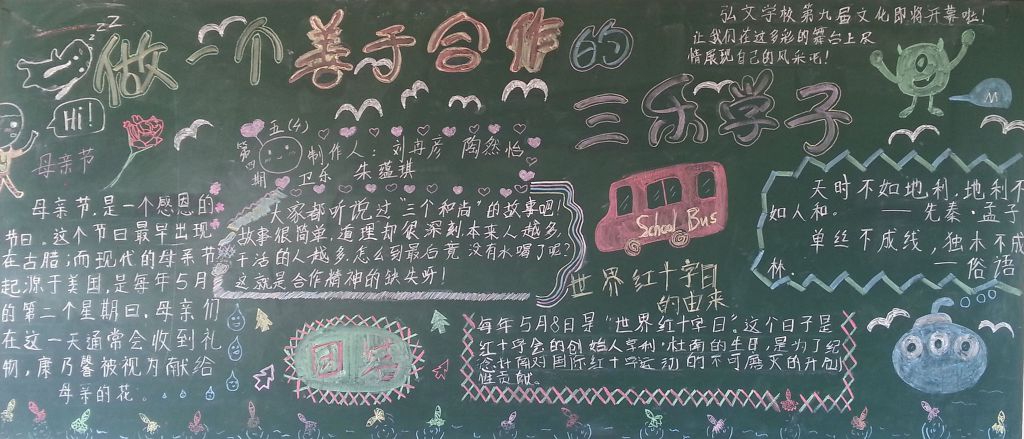 做一个善于合作的
三乐学子
弘文学校第九届文化即将开幕啦!
让我们在这多彩的舞台上尽
情展现自己的风采吧!
M
Hi!
母亲节
母亲节,是一个感恩的
节日,这个节日最早出现
在古腊;而现代的母亲节
起源于美国,是每年5月
的第二个星期日,母亲们
在这一天通常会收到礼
物,康乃馨被视为献给
母亲的花。
五(4)
第四期
制作人:刘冉彦 陶然怡
卫东 朱蕴琪
大家都听说过“三个和尚”的故事吧!
故事很简单,道理却很深刻本来人越多,
干活的人越多,怎么到最后竟没有水喝了呢?
这就是合作精神的缺失呀!
School Bus
世界红十字日
的由来
每年5月8日是“世界红十字日”。这个日子是
红十字会的创始人亨利·杜南的生日,是为了纪
念杜南对国际红十字运动的不可磨灭的开创
性贡献。
团结
天时不如地利,地利不
如人和。 ——先秦·孟子
单丝不成线,独木不成
林. ——俗语